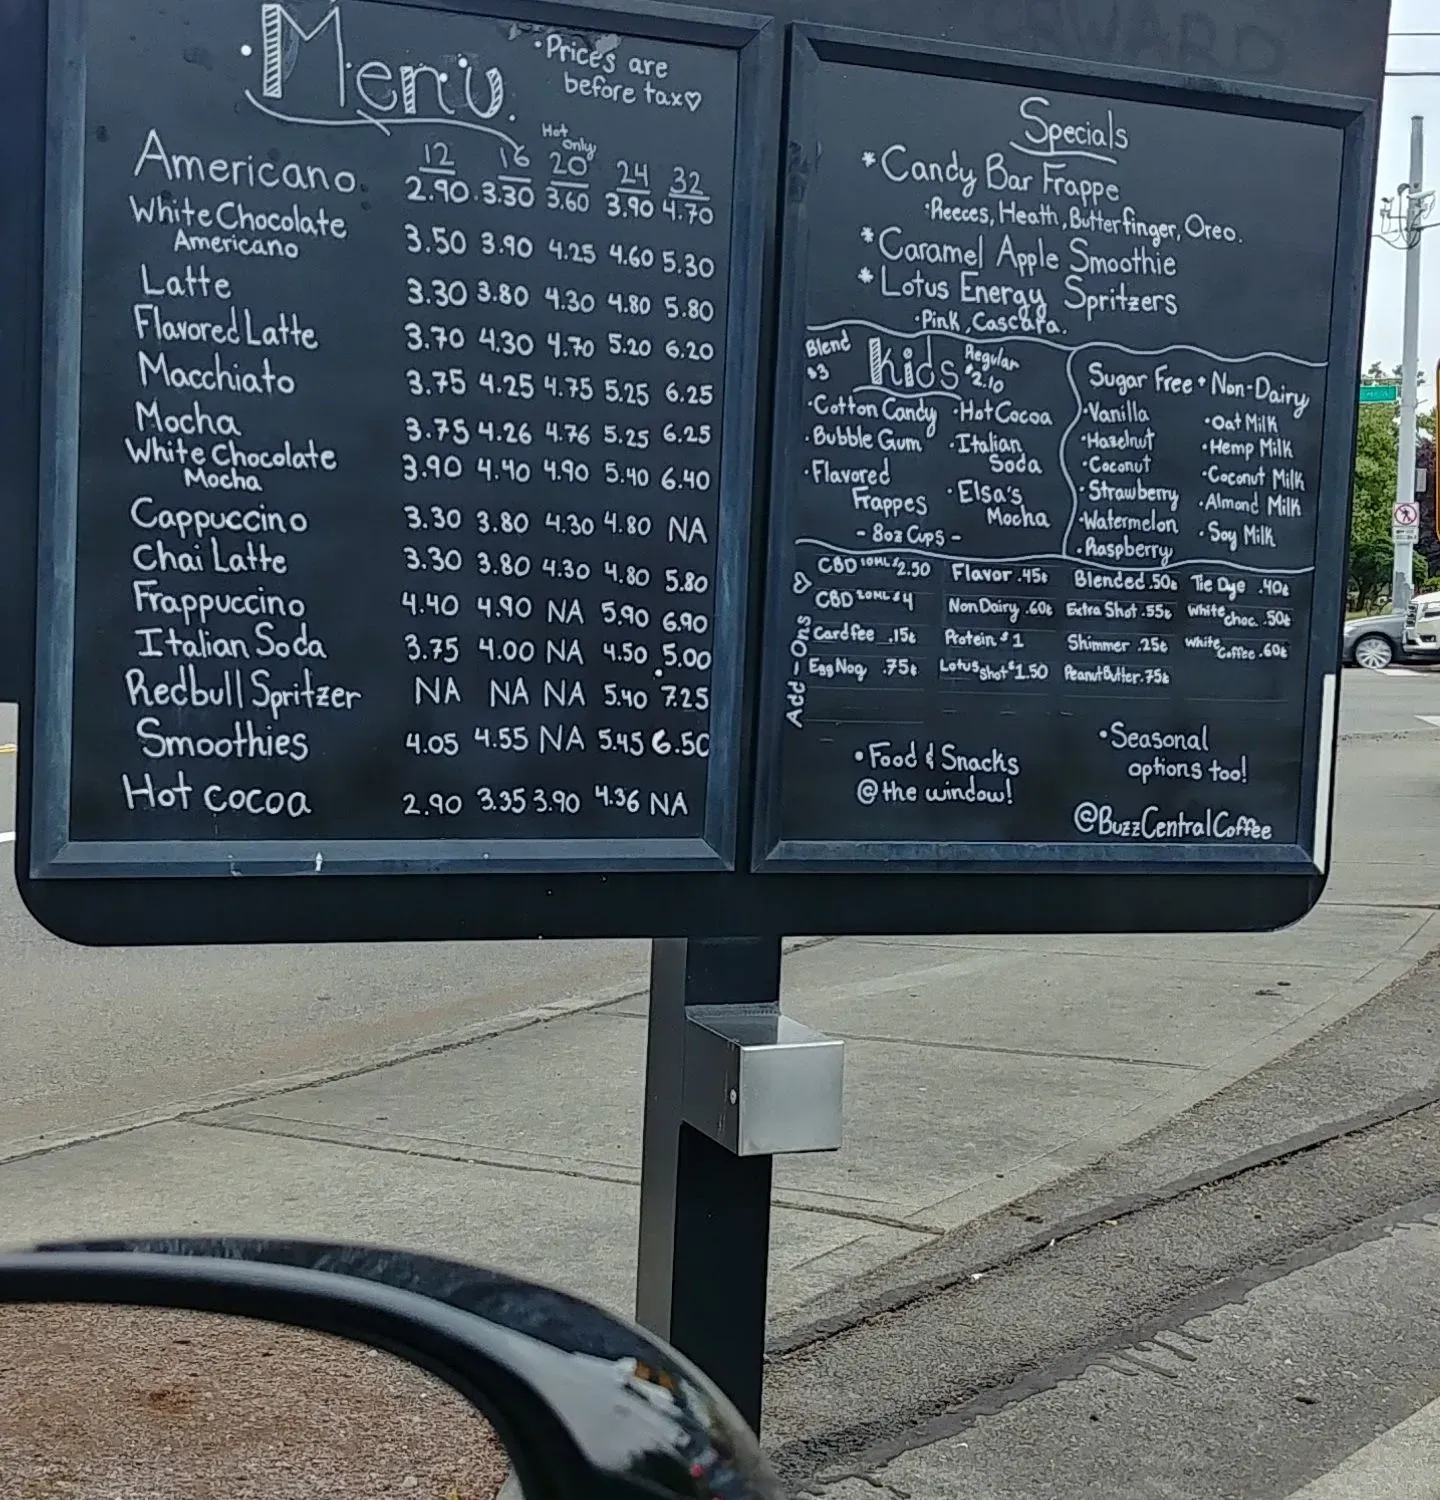 ·Menu.
·Prices are
before tax♡
Hot
Only
12 16 20 24 32
Americano 2.90 3.30 3.60 3.90 4.70
White Chocolate
Americano 3.50 3.90 4.25 4.60 5.30
Latte 3.30 3.80 4.30 4.80 5.80
Flavored Latte 3.70 4.30 4.70 5.20 6.20
Macchiato 3.75 4.25 4.75 5.25 6.25
Mocha 3.75 4.26 4.76 5.25 6.25
White Chocolate
Mocha 3.90 4.40 4.90 5.40 6.40
Cappuccino 3.30 3.80 4.30 4.80 NA
Chai Latte 3.30 3.80 4.30 4.80 5.80
Frappuccino 4.40 4.90 NA 5.90 6.90
Italian Soda 3.75 4.00 NA 4.50 5.00
Redbull Spritzer NA NA NA 5.40 7.25
Smoothies 4.05 4.55 NA 5.45 6.50
Hot cocoa 2.90 3.35 3.90 4.36 NA
Specials
*Candy Bar Frappe
·Reeces, Heath, Butterfinger, Oreo.
*Caramel Apple Smoothie
*Lotus Energy Spritzers
·Pink, Cascara.
Blend
$3
Kids
Regular
$2.10
·Cotton Candy ·Hot Cocoa
·Bubble Gum ·Italian
Soda
·Flavored
Frappes ·Elsa's
Mocha
- 8oz Cups -
Sugar Free + Non-Dairy
·Vanilla ·Oat Milk
·Hazelnut ·Hemp Milk
·Coconut ·Coconut Milk
·Strawberry ·Almond Milk
·Watermelon ·Soy Milk
·Raspberry
Add-Ons ♡
CBD 10ML $2.50 Flavor .45¢ Blended .50¢ Tie Dye .40¢
CBD 20ML $4 Non Dairy .60¢ Extra Shot .55¢ White choc. .50¢
Card fee .15¢ Protein $1 Shimmer .25¢ White Coffee .60¢
Egg Nog .75¢ Lotus shot $1.50 Peanut Butter .75¢
·Food & Snacks
@ the window!
·Seasonal
options too!
@BuzzCentralCoffee